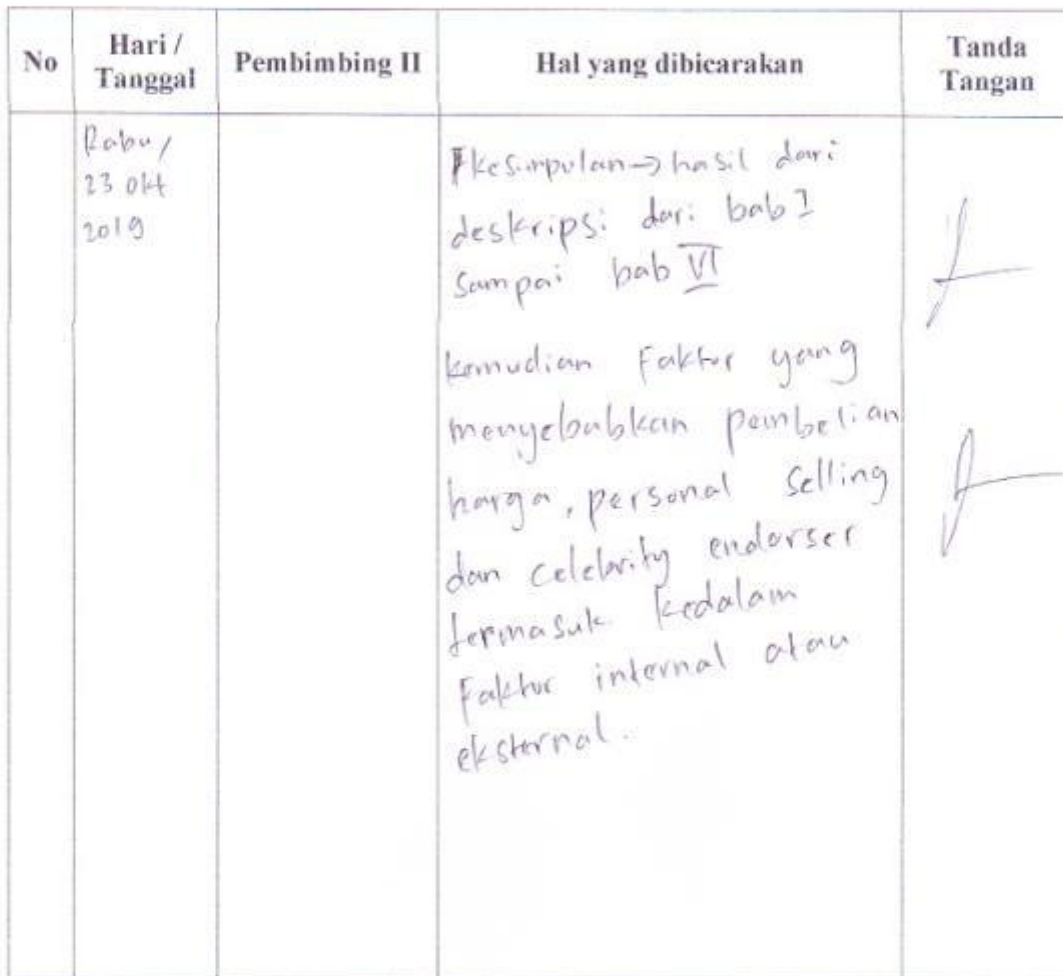 No
Hari /
Tanggal
Pembimbing II
Hal yang dibicarakan
Tanda
Tangan
Rabu /
23 Okt
2019
kesimpulan → hasil dari
deskripsi dari bab I
Sampai bab VI
kemudian Faktor yang
menyebabkan pembelian
harga, personal Selling
dan celebrity endorser
termasuk kedalam
Faktor internal atau
eksternal.